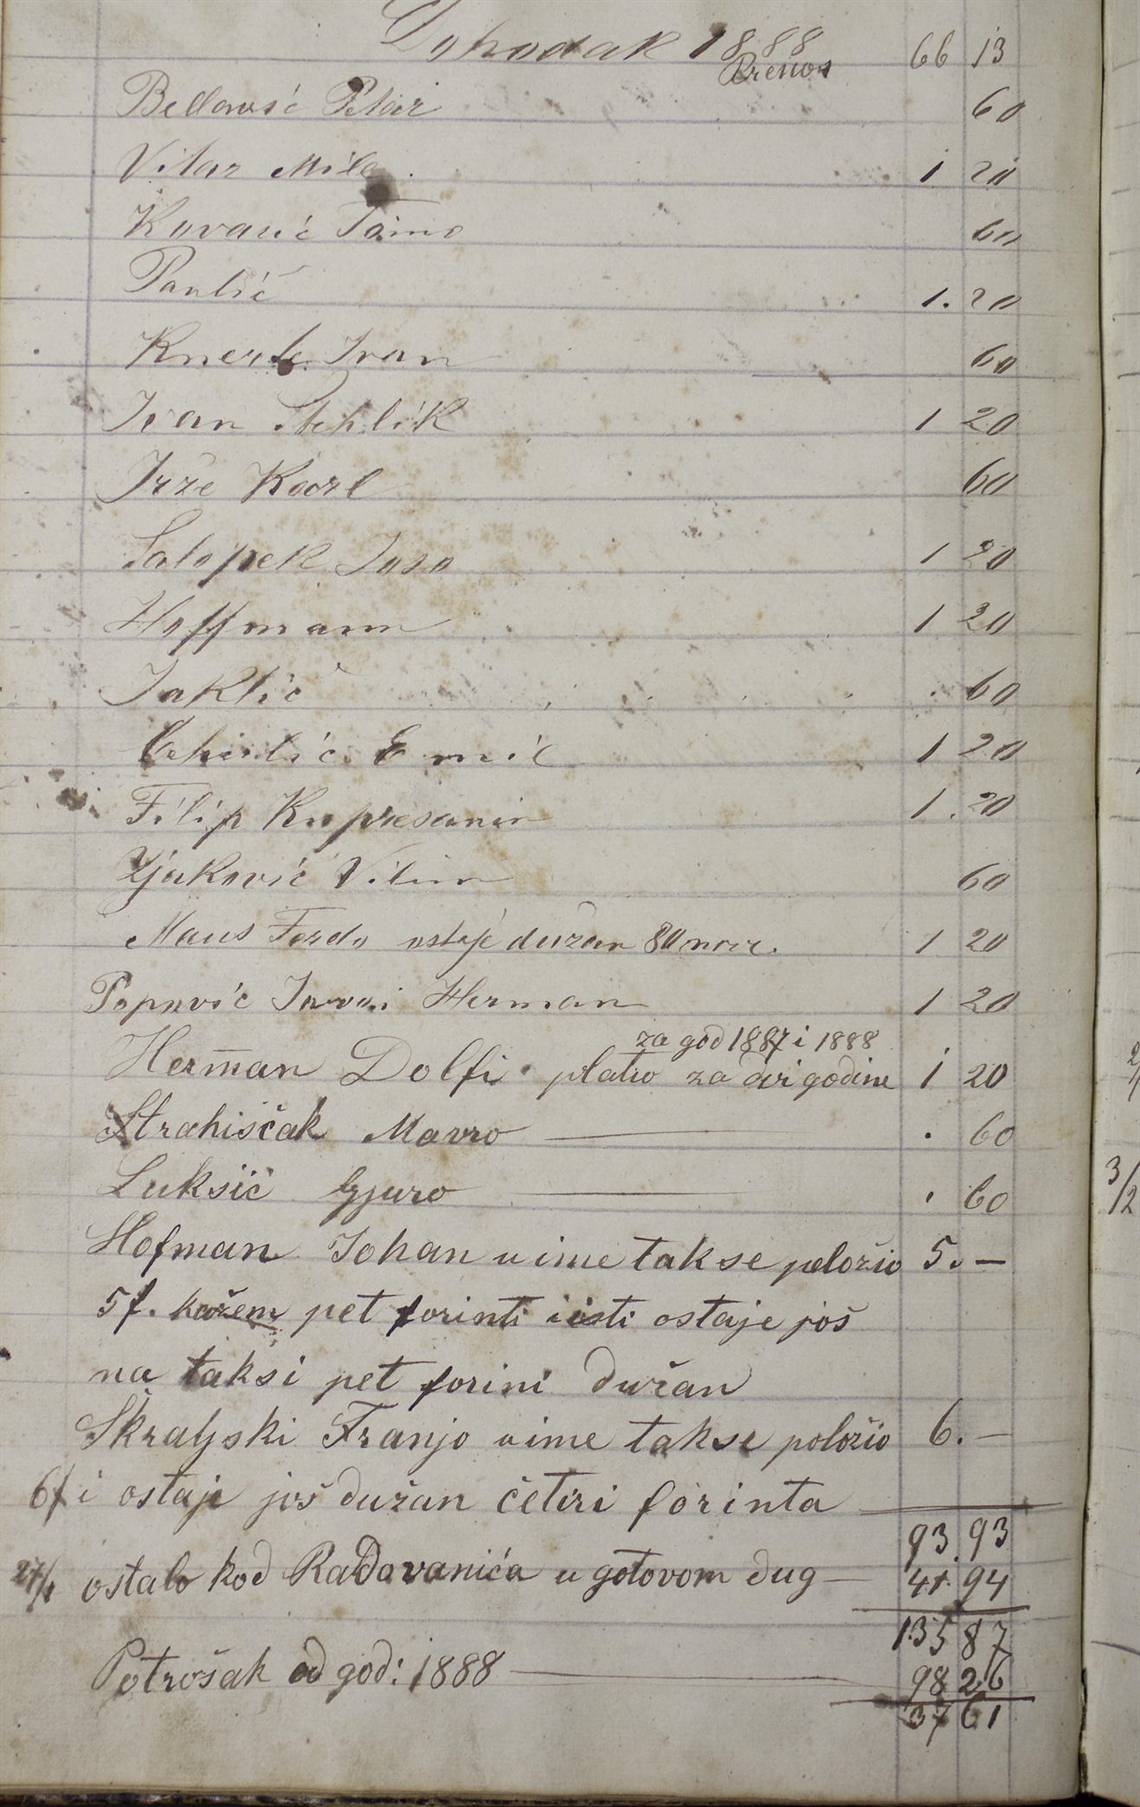 Dohodak 1888 66 13
Prenos
Bellavić Petar 60
Vitar Mile 1 20
Kovačić Tomo 60
Pavlić 1. 20
Knerb Ivan 60
Ivan Stehlik 1 20
60
Salopek Joso 1 20
Hoffmann 1 20
Jaklić . 60
Emil 1 20
Filip Kupresanin 1. 20
Vilim 60
Maus Ferdo ostaje dužan 80 novč. 1 20
Popović Herman 1 20
za god 1887 i 1888
Herman Dolfi platio za dvi godine 1 20
Strahisčak Mavro . 60
Luksić Gjuro . 60
Hofman Johan u ime takse položio 5. —
5 f. kažem pet forinti i isti ostaje još
na taksi pet forini dužan
Škraljski Franjo u ime takse položio 6. —
6f i ostaje još dužan četiri forinta
93. 93
27/1 ostalo kod Radovanića u gotovom dug 41. 94
135 87
Potrošak od god: 1888 98 26
37 61
3/2